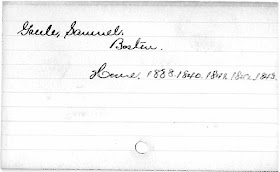 Gaule, Samuel.
Boston.
House, 1838. 1840. 1841. 1842. 1843.